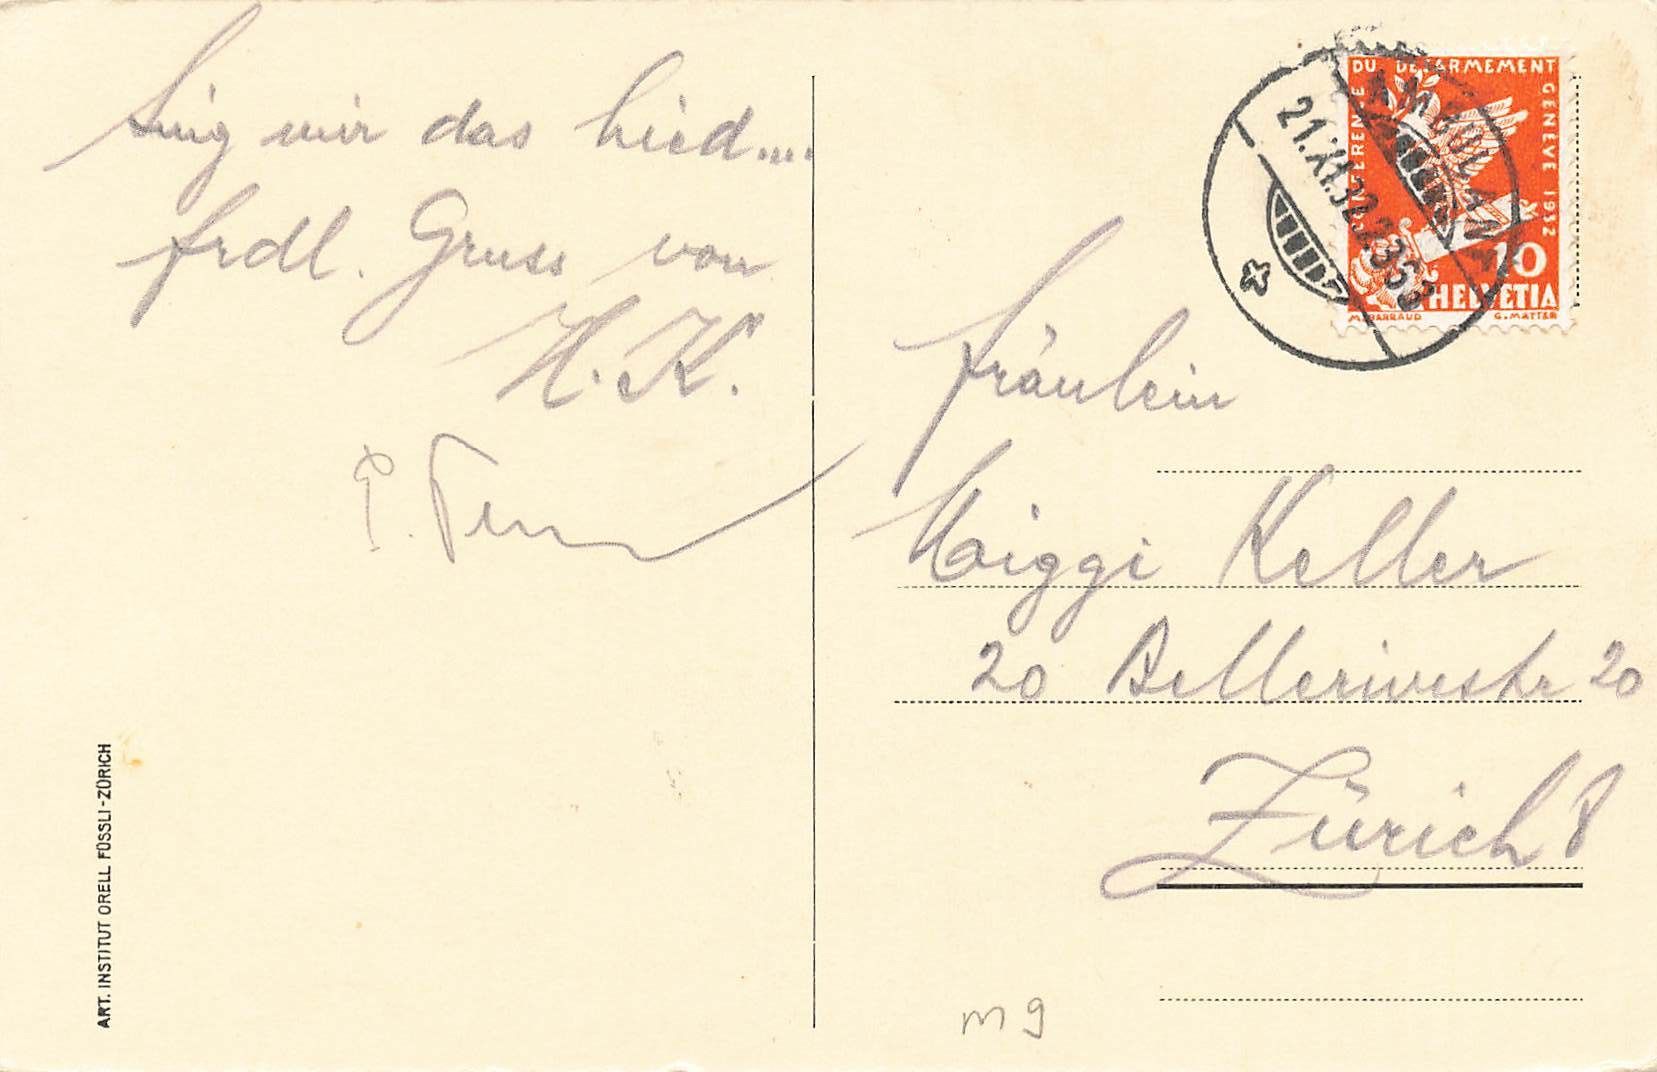 Sing mir das Lied....
frdl. Gruss von
H. K.
ART. INSTITUT ORELL FÜSSLI - ZÜRICH
CONFERENCE DU DESARMEMENT GENEVE 1932
10
HELVETIA
M. BARRAUD G. MATTER
AMBULANT
21.XI.32.
Fräulein
Miggi Keller
20 Bellerivestr 20
Zürich 8
m 9